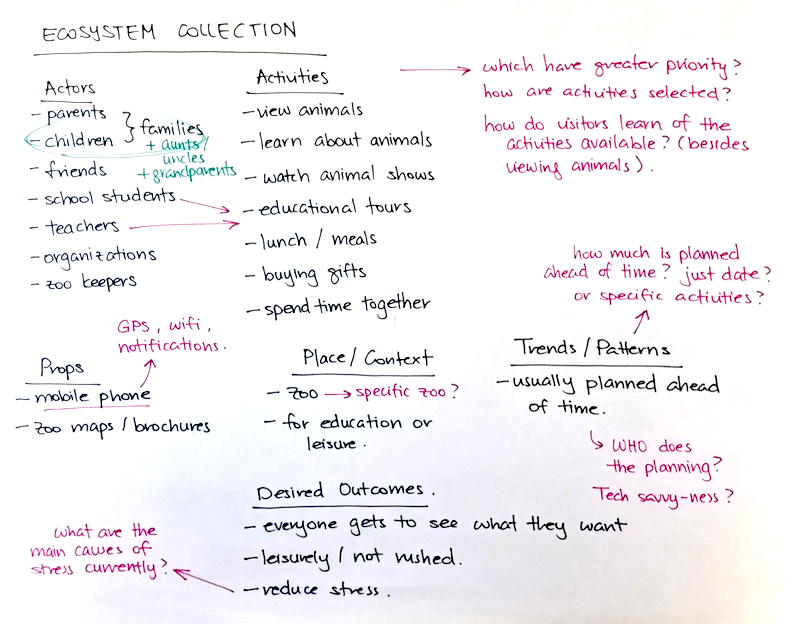 ECOSYSTEM COLLECTION
Actors
- parents
- children } families
+ aunts/
uncles
+ grandparents
- friends
- school students
- teachers
- organizations
- zoo keepers
Activities
- view animals
- learn about animals
- watch animal shows
- educational tours
- lunch / meals
- buying gifts
- spend time together
→ which have greater priority?
how are activities selected?
how do visitors learn of the
activities available? (besides
viewing animals).
how much is planned
ahead of time? just date?
or specific activities?
GPS, wifi,
notifications.
Props
- mobile phone
- zoo maps / brochures
Place / Context
- zoo → specific zoo?
- for education or
leisure.
Trends / Patterns
- usually planned ahead
of time.
↳ WHO does
the planning?
Tech savvy-ness?
Desired Outcomes.
- everyone gets to see what they want
- leisurely / not rushed.
- reduce stress.
what are the
main causes of
stress currently?